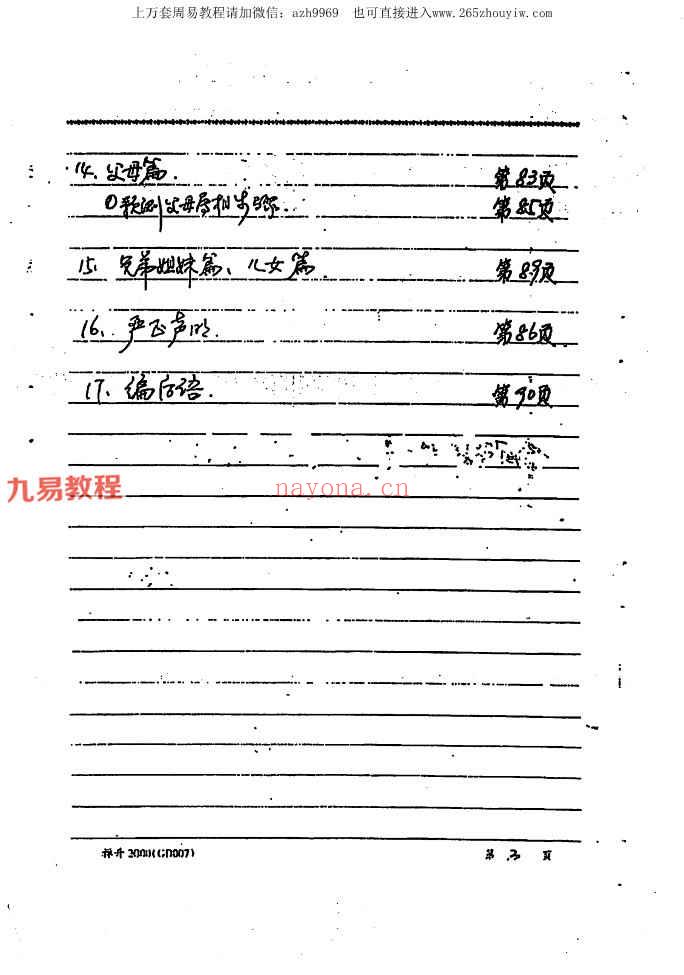 上万套周易教程请加微信：azh9969 也可直接进入www.265zhouyiw.com
14、父母篇. 第83页
①预测父母属相步骤.. 第85页
15、兄弟姐妹篇、儿女篇 第89页
16、严正声明. 第86页
17、编后语. 第90页
九易教程
nayona.cn
2000(GD007) 第 3 页